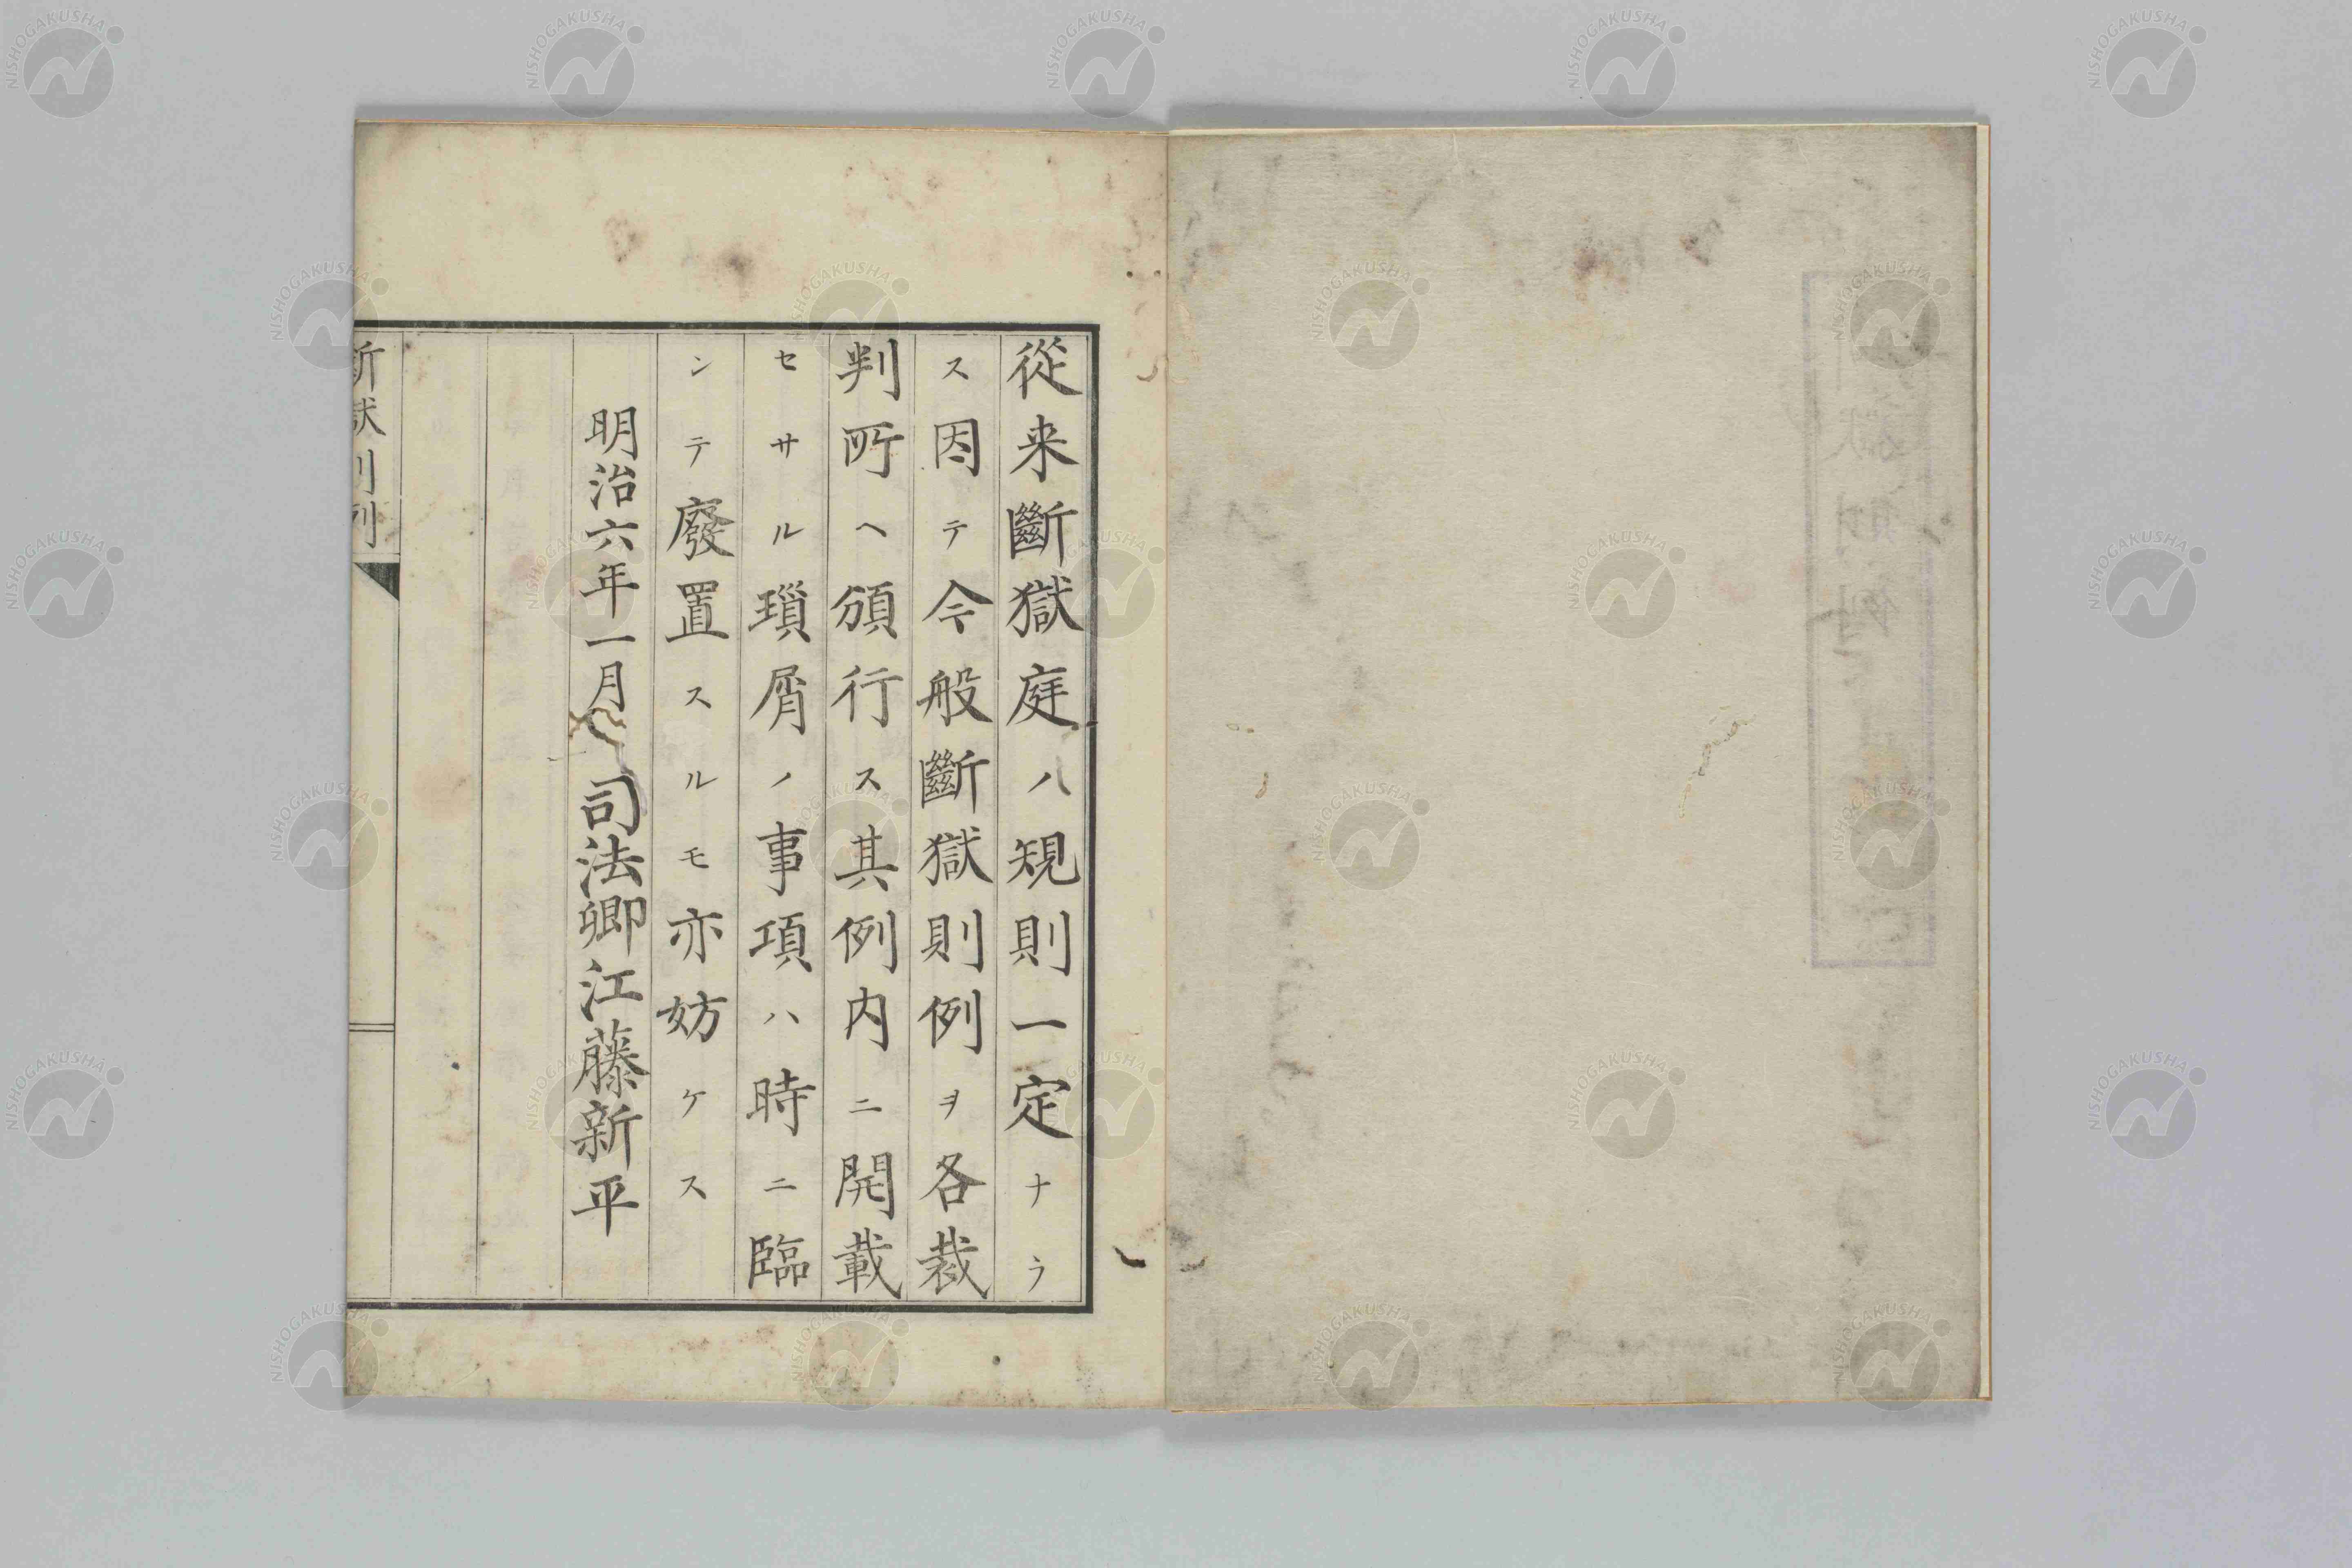 從来斷獄庭ハ規則一定ナラ
ス因テ今般斷獄則例ヲ各裁
判所ヘ頒行ス其例内ニ開載
セサル瑣屑ノ事項ハ時ニ臨
ンテ廢置スルモ亦妨ケス
明治六年一月 司法卿江藤新平
斷獄則例
NISHOGAKUSHA